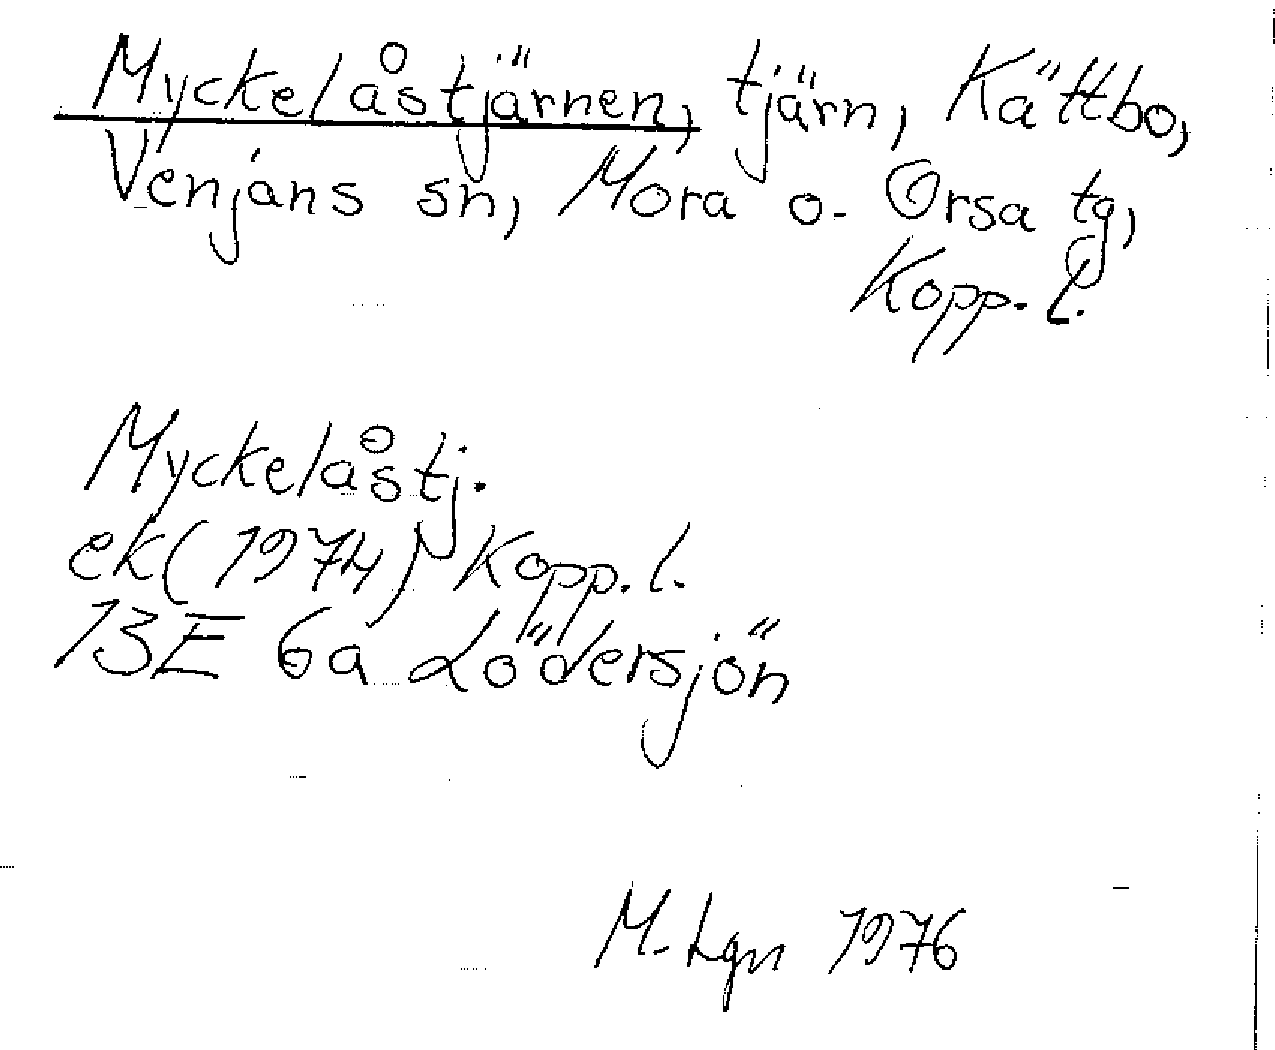 Myckelåstjärnen, tjärn, Kättbo,
Venjans sn, Mora o. Orsa tg,
Kopp. l.
Myckelåstj.
ek (1974) Kopp. l.
13E 6a Lödersjön
M. Lgn 1976